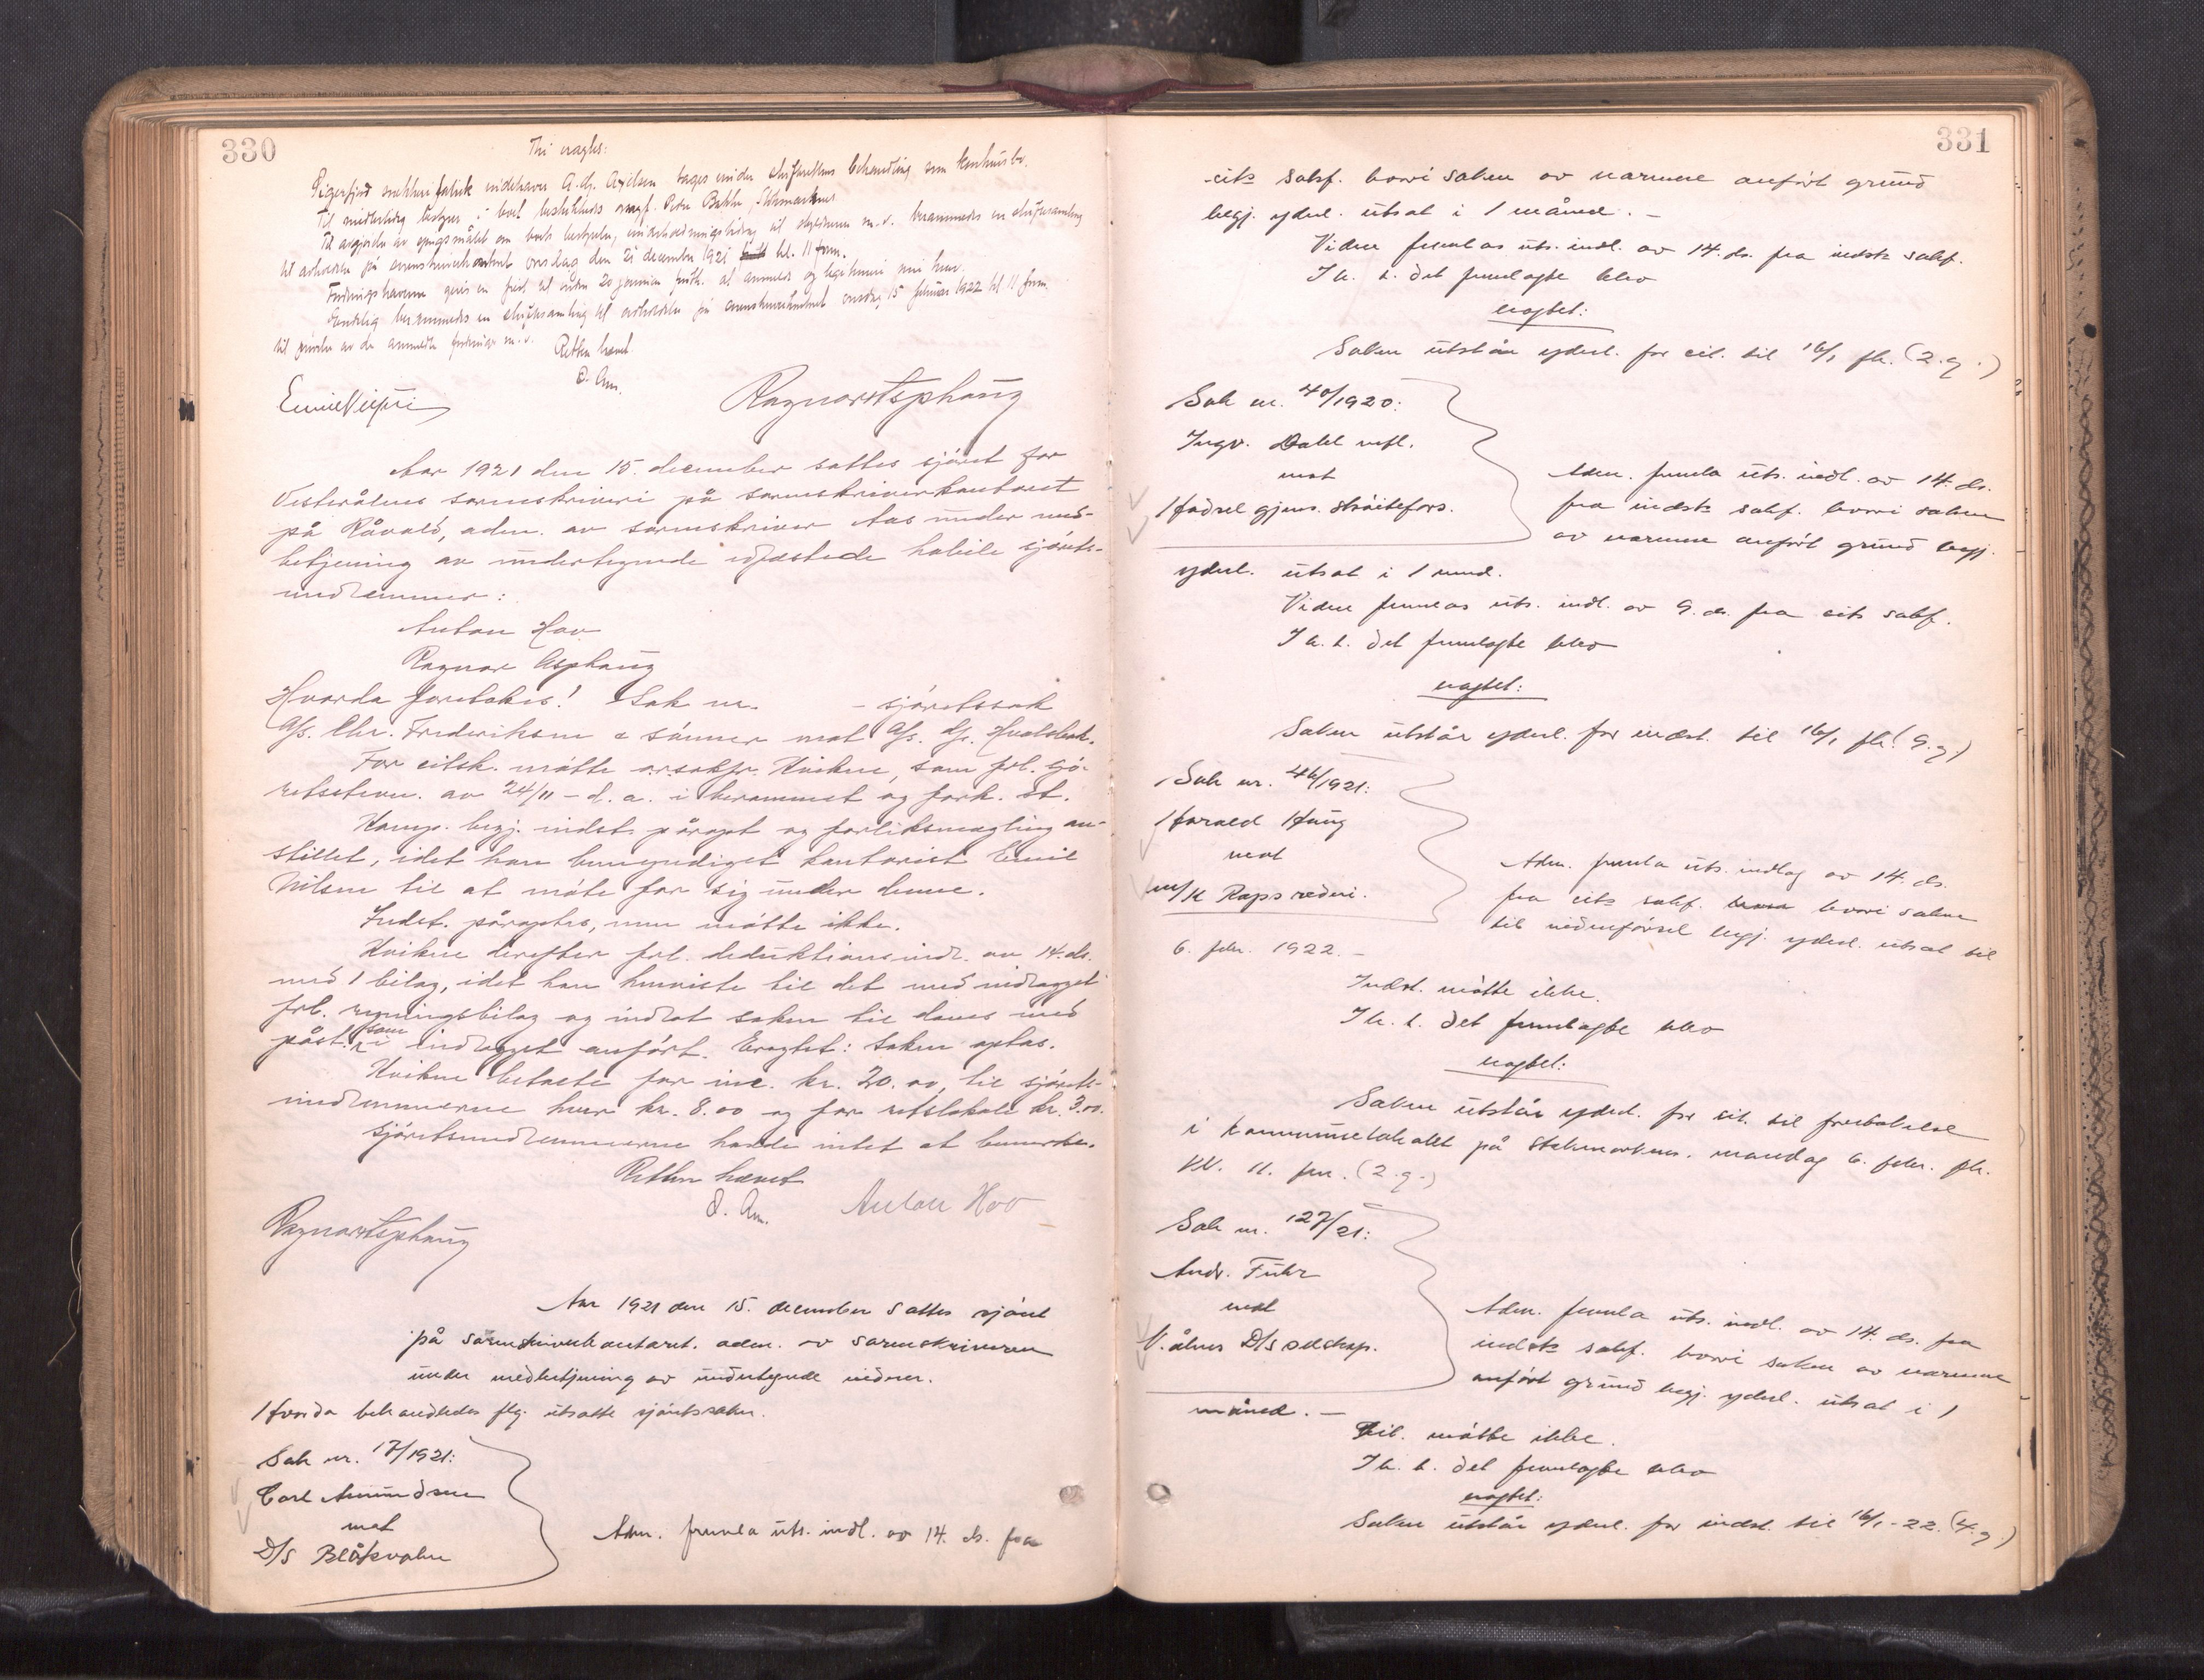 330
Thi eragtes:
Sigerfjord snekkerifabrik indehaver A. Chr. Axelsen tages under skifterettens behandling som konkursbo.
Til midlertidig bestyrer i boet beskikkedes ovrsgf. Peder Bakke, Stokmarknes
Til avgjørelse av spørgsmålet om boets bestyrelse, underholdningsbidrag til skyldneren m.v. berammedes en skiftesamling
til avholdelse på sorenskriverkontoret onsdag den 21 december 1921 kl. 11 form.
Fordringshaverne gives en frist til inden 20 januar fristk. at anmelde og legitimere sine krav.
Endelig berammedes en skiftesamling til avholdelse på sorenskriverkontoret onsdag 15 februar 1922 kl 11 form.
til prøvelse av de anmeldte fordringer m.v.
Retten hævet.
O. Aas.
Ragnar Asphaug
Aar 1921 den 15. december sattes sjöret for
Vesterålens sorenskriveri på sorenskriverkontoret
på Råvald, adm. av sorenskriver Aas under med-
betjening av undertegnede edfæstede habile sjörets-
medlemmer:
Anton Hov
Ragnar Asphaug
Hvorda foretokes! Sak nr. - sjöretssak
A/s. Chr. Frederiksen & sönner mot A/s. D/s. Hvalsbak.
For citsk. mötte o.r.sakfr. Kviknne, som frl. sjö-
retsstevn. av 24/11 - d.a. i berammet og fork. st.
Komp. begj. indst. påropt og forliksmegling an-
stillet, idet han bemyndiget kontorist Emil
Nilsen til at möte for sig under denne.
Indst. påroptes, men mötte ikke.
Kvikne derefter frl. deduktionsindl. av 14. ds.
med 1 bilag, idet han henviste til det med indlægget
frl. regningsbilag og indlot saken til doms med
påst. som i indlægget anfört. Eragtet: Saken optas.
Kvikne betalte for inc. kr. 20.00, til sjörets-
medlemmerne hver kr. 8.00 og for retslokale kr. 3.00.
Sjöretsmedlemmerne havde intet at bemerke.
Retten hævet
O. Aas. Anton Hov
Ragnar Asphaug
Aar 1921 den 15. december sattes sjöret
på sorenskriverkontoret. adm. av sorenskriveren
under medbetjening av undertegnede vidner.
Hvorda behandledes flg. utsatte sjöretssaker.
Sak nr. 17/1921:
Carl Amundsen
mot
D/S Blåkvalen
Adm. fremla uts. indl. av 14. ds. fra
331
cits sakf. hvori saken av nærmere anfört grund
begj. yderl. utsat i 1 måned. -
Videre fremlas uts. indl. av 14. ds. fra indsts sakf.
I h. t. det fremlagte blev
eragtet:
Saken utstår yderl. for cit. til 16/1 fk. (2. g.)
Sak nr. 40/1920:
Ingv. Dahl mfl.
mot
Hadsel gjens. sköitefors.
Adm. fremla uts. indl. av 14. ds.
fra indsts sakf. hvori saken
av nærmere anfört grund begj.
yderl. utsat i 1 mnd.
Videre fremlas uts. indl. av 9. ds. fra cits sakf.
I h. t. det fremlagte blev
eragtet:
Saken utstår yderl. for indst. til 16/1 fk. (9. g.)
Sak nr. 46/1921:
Harald Haug
mot
m/k Raps rederi.
Adm. fremla uts. indlæg av 14. ds.
fra cits sakf. hvori saken
til vidneförsel begj. yderl. utsat til
6. febr. 1922. -
Indst. mötte ikke.
I h. t. det fremlagte blev
eragtet:
Saken utstår yderl. for cit. til foretakelse
i kommunelokalet på Stokmarknes. mandag 6. febr. fk.
kl. 11. fm. (2. g.)
Sak nr. 127/21:
Andr. Führ
mot
V.ålens D/S selskap.
Adm. fremla uts. indl. av 14. ds. fra
indsts sakf. hvori saken av nærmere
anfört grund begj. yderl. utsat i 1
måned. -
Cit. mötte ikke.
I h. t. det fremlagte blev
eragtet:
Saken utstår yderl. for indst. til 16/1-22. (4. g.)